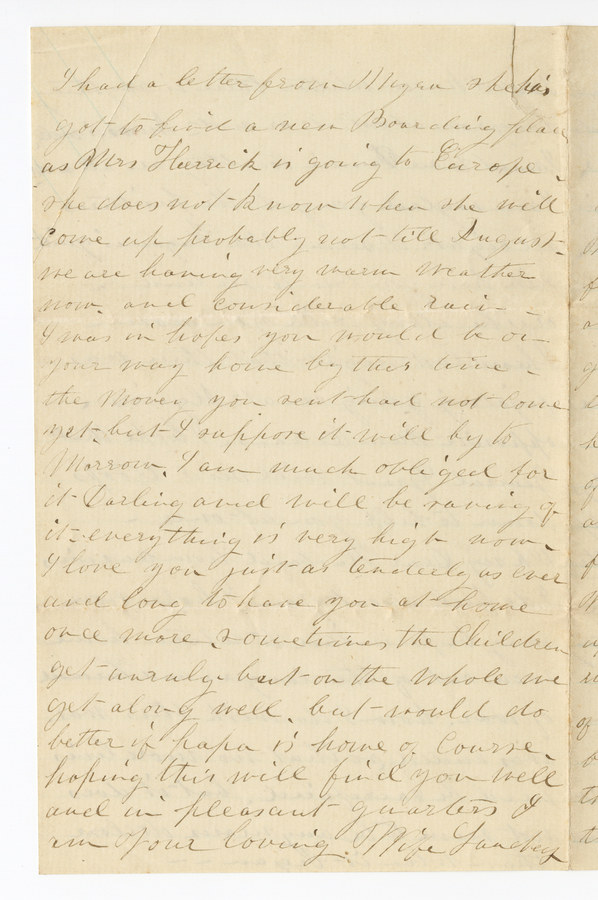 I had a letter from she has
got to find a new Boarding place
as Mrs Herrick is going to Europe -
she does not know when she will
come up probably not till August -
we are having very warm weather
now. and considerable rain -
I was in hopes you would be on
your way home by this time -
the Money you sent had not come
yet, but I suppose it will by to
Morrow. I am much obliged for
it Darling and will be saving of
it - everything is very high now -
I love you just as tenderly as ever
and long to have you at home
once more, sometimes the Children
get unruly but on the whole we
get along well, but would do
better if papa is home of course.
hoping this will find you well
and in pleasant quarters I
am your loving Wife